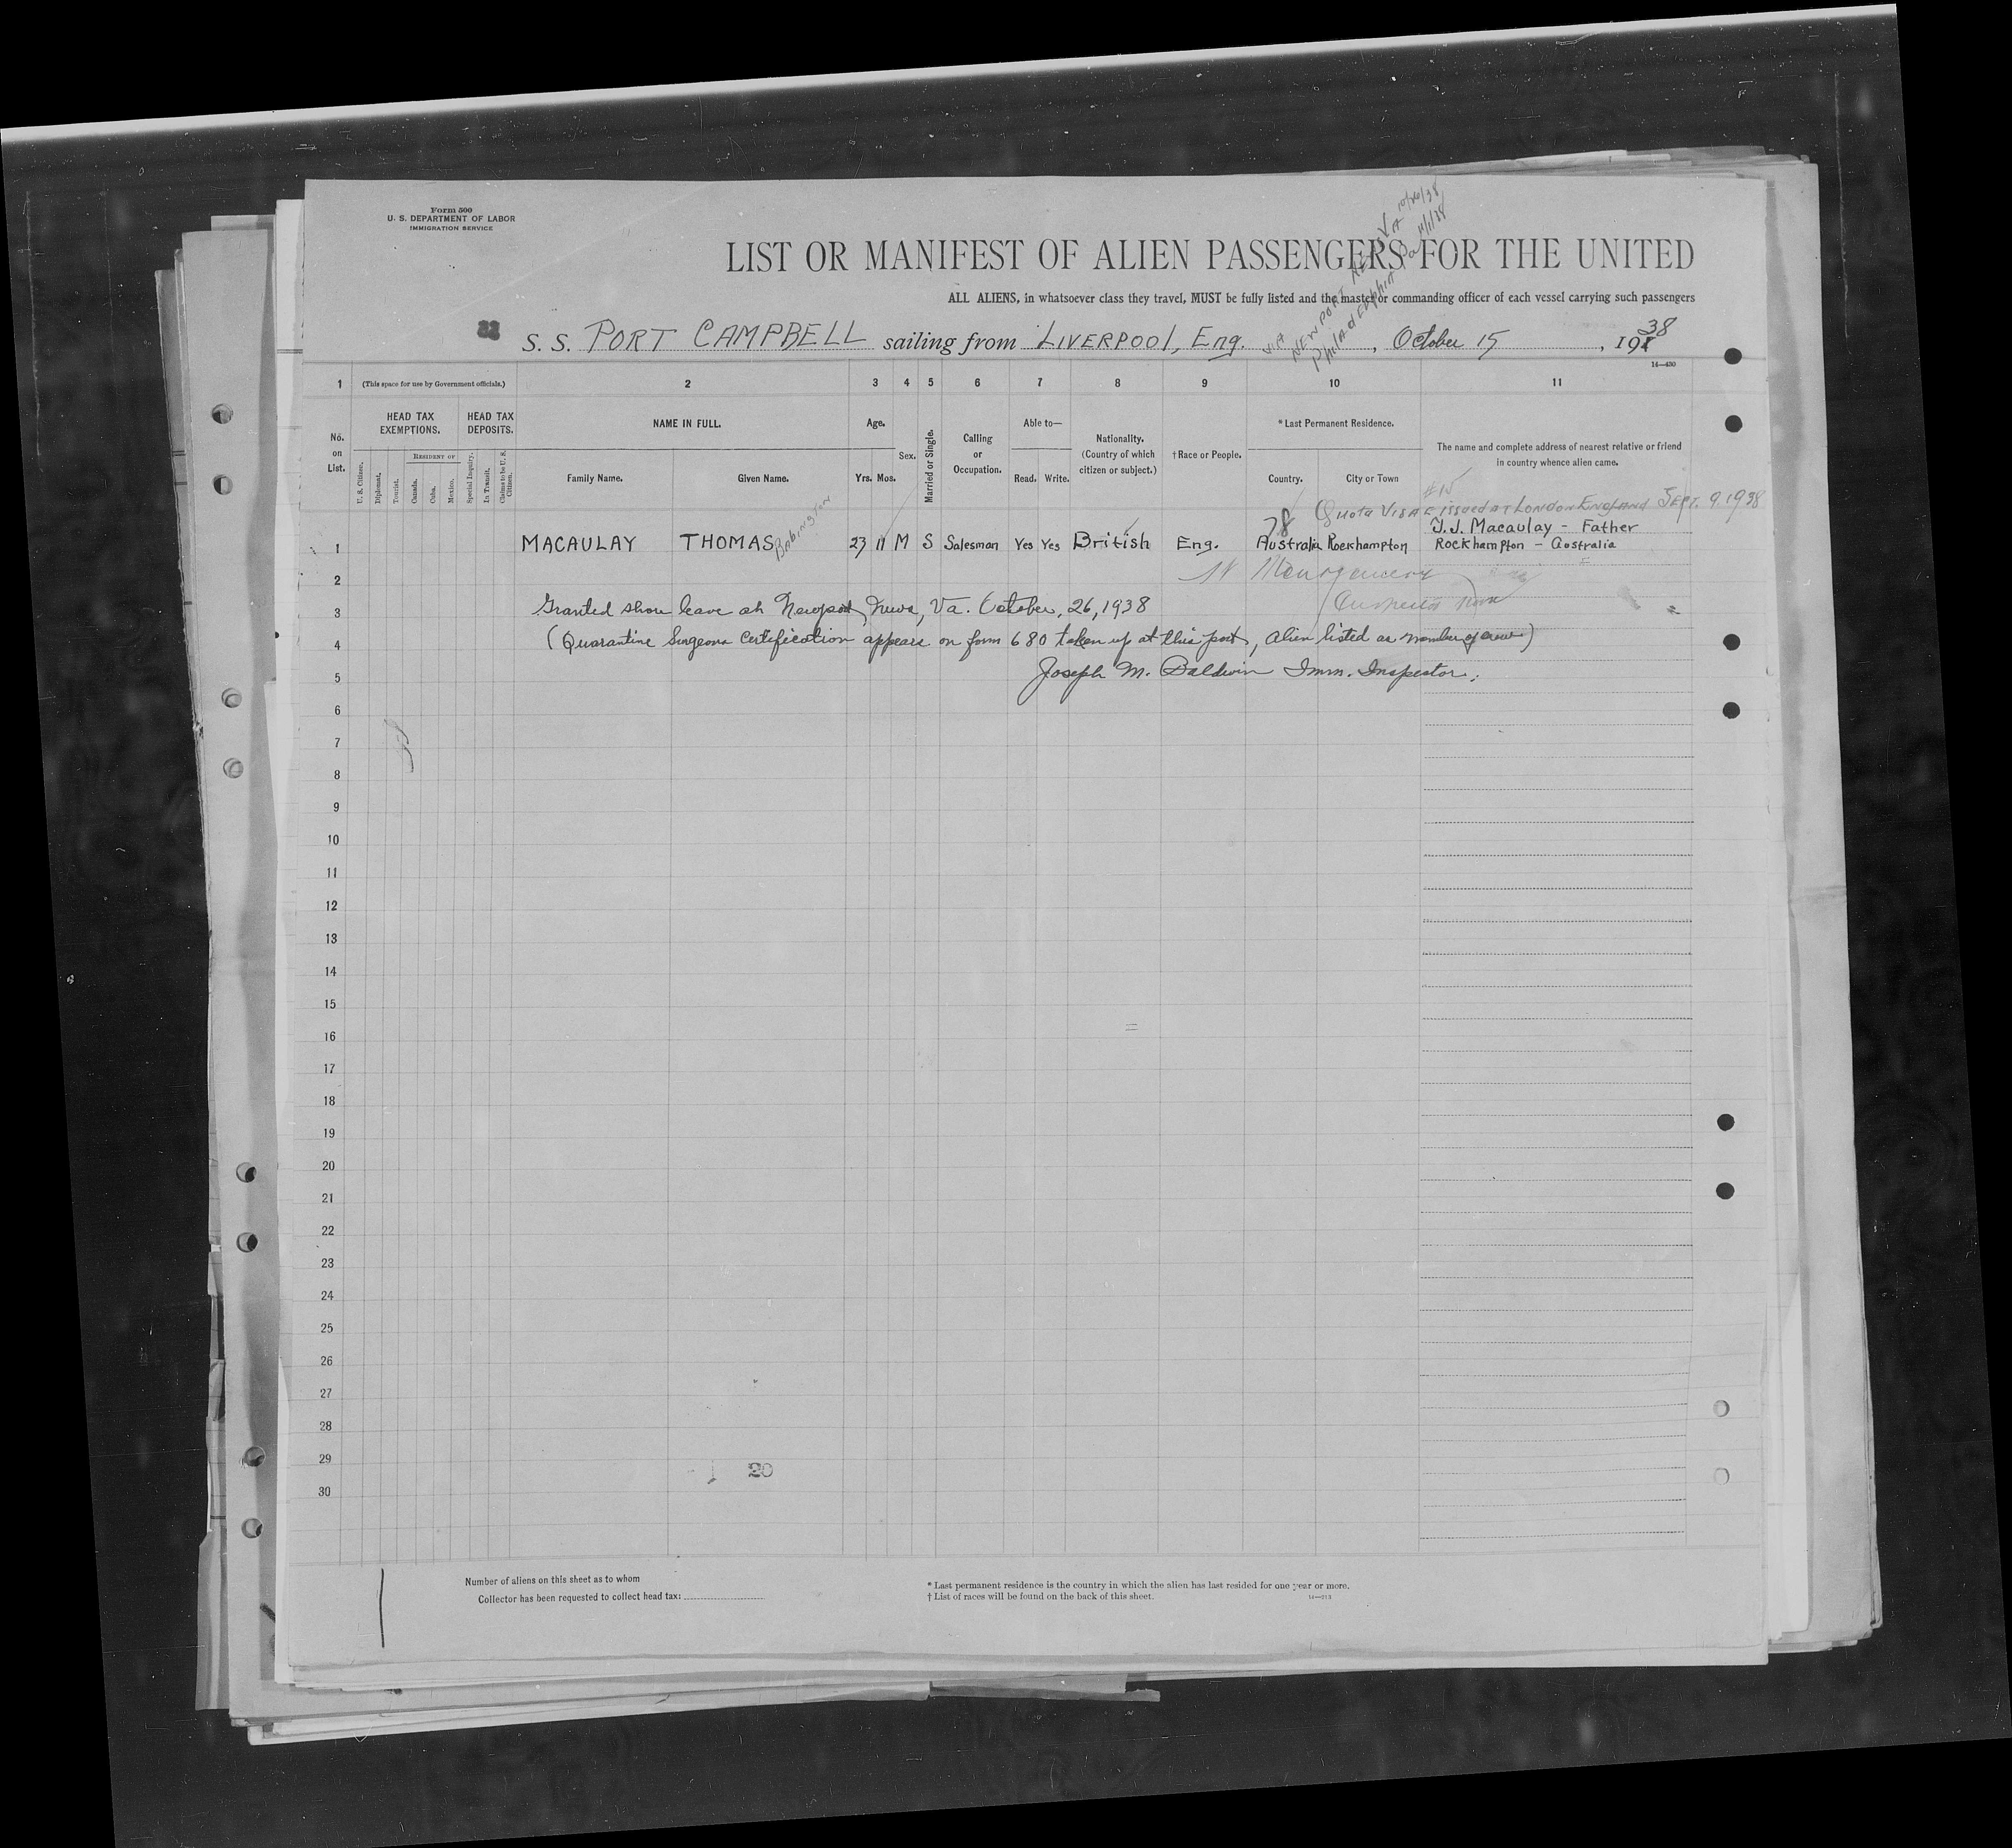 Form 500
U. S. DEPARTMENT OF LABOR
IMMIGRATION SERVICE
LIST OR MANIFEST OF ALIEN PASSENGERS FOR THE UNITED
ALL ALIENS, in whatsoever class they travel, MUST be fully listed and the master or commanding officer of each vessel carrying such passengers
VIA NEWPORT NEWS VA 10/26/38
Philadelphia Pa 11/1/38
S. S. PORT CAMPBELL sailing from LIVERPOOL, Eng. , October 15 , 1938
14—430
1 (This space for use by Government officials.) 2 3 4 5 6 7 8 9 10 11
No. on List.
HEAD TAX EXEMPTIONS.
HEAD TAX DEPOSITS.
NAME IN FULL.
Age.
Sex.
Married or Single.
Calling or Occupation.
Able to—
Nationality. (Country of which citizen or subject.)
†Race or People.
*Last Permanent Residence.
The name and complete address of nearest relative or friend in country whence alien came.
U. S. Citizen.
Diplomat.
Tourist.
RESIDENT OF
Canada.
Cuba.
Mexico.
Special Inquiry.
In Transit.
Claims to be U. S. Citizen.
Family Name.
Given Name.
Yrs. Mos.
Read. Write.
Country.
City or Town
#15
Quota VISA issued AT LONDON ENGLAND SEPT. 9. 1938
78
T. J. Macaulay - Father
1 MACAULAY THOMAS Babington 23 11 M S Salesman Yes Yes British Eng. Australia Rockhampton Rockhampton - Australia
2
3 Granted shore leave at Newport News, Va. October, 26, 1938
4 (Quarantine Surgeons Certification appears on form 680 taken up at this port, Alien listed as member of crew)
5 Joseph M. Baldwin Imm. Inspector.
6
7
8
9
10
11
12
13
14
15
16
17
18
19
20
21
22
23
24
25
26
27
28
29
30
20
Number of aliens on this sheet as to whom
Collector has been requested to collect head tax:
* Last permanent residence is the country in which the alien has last resided for one year or more.
† List of races will be found on the back of this sheet.